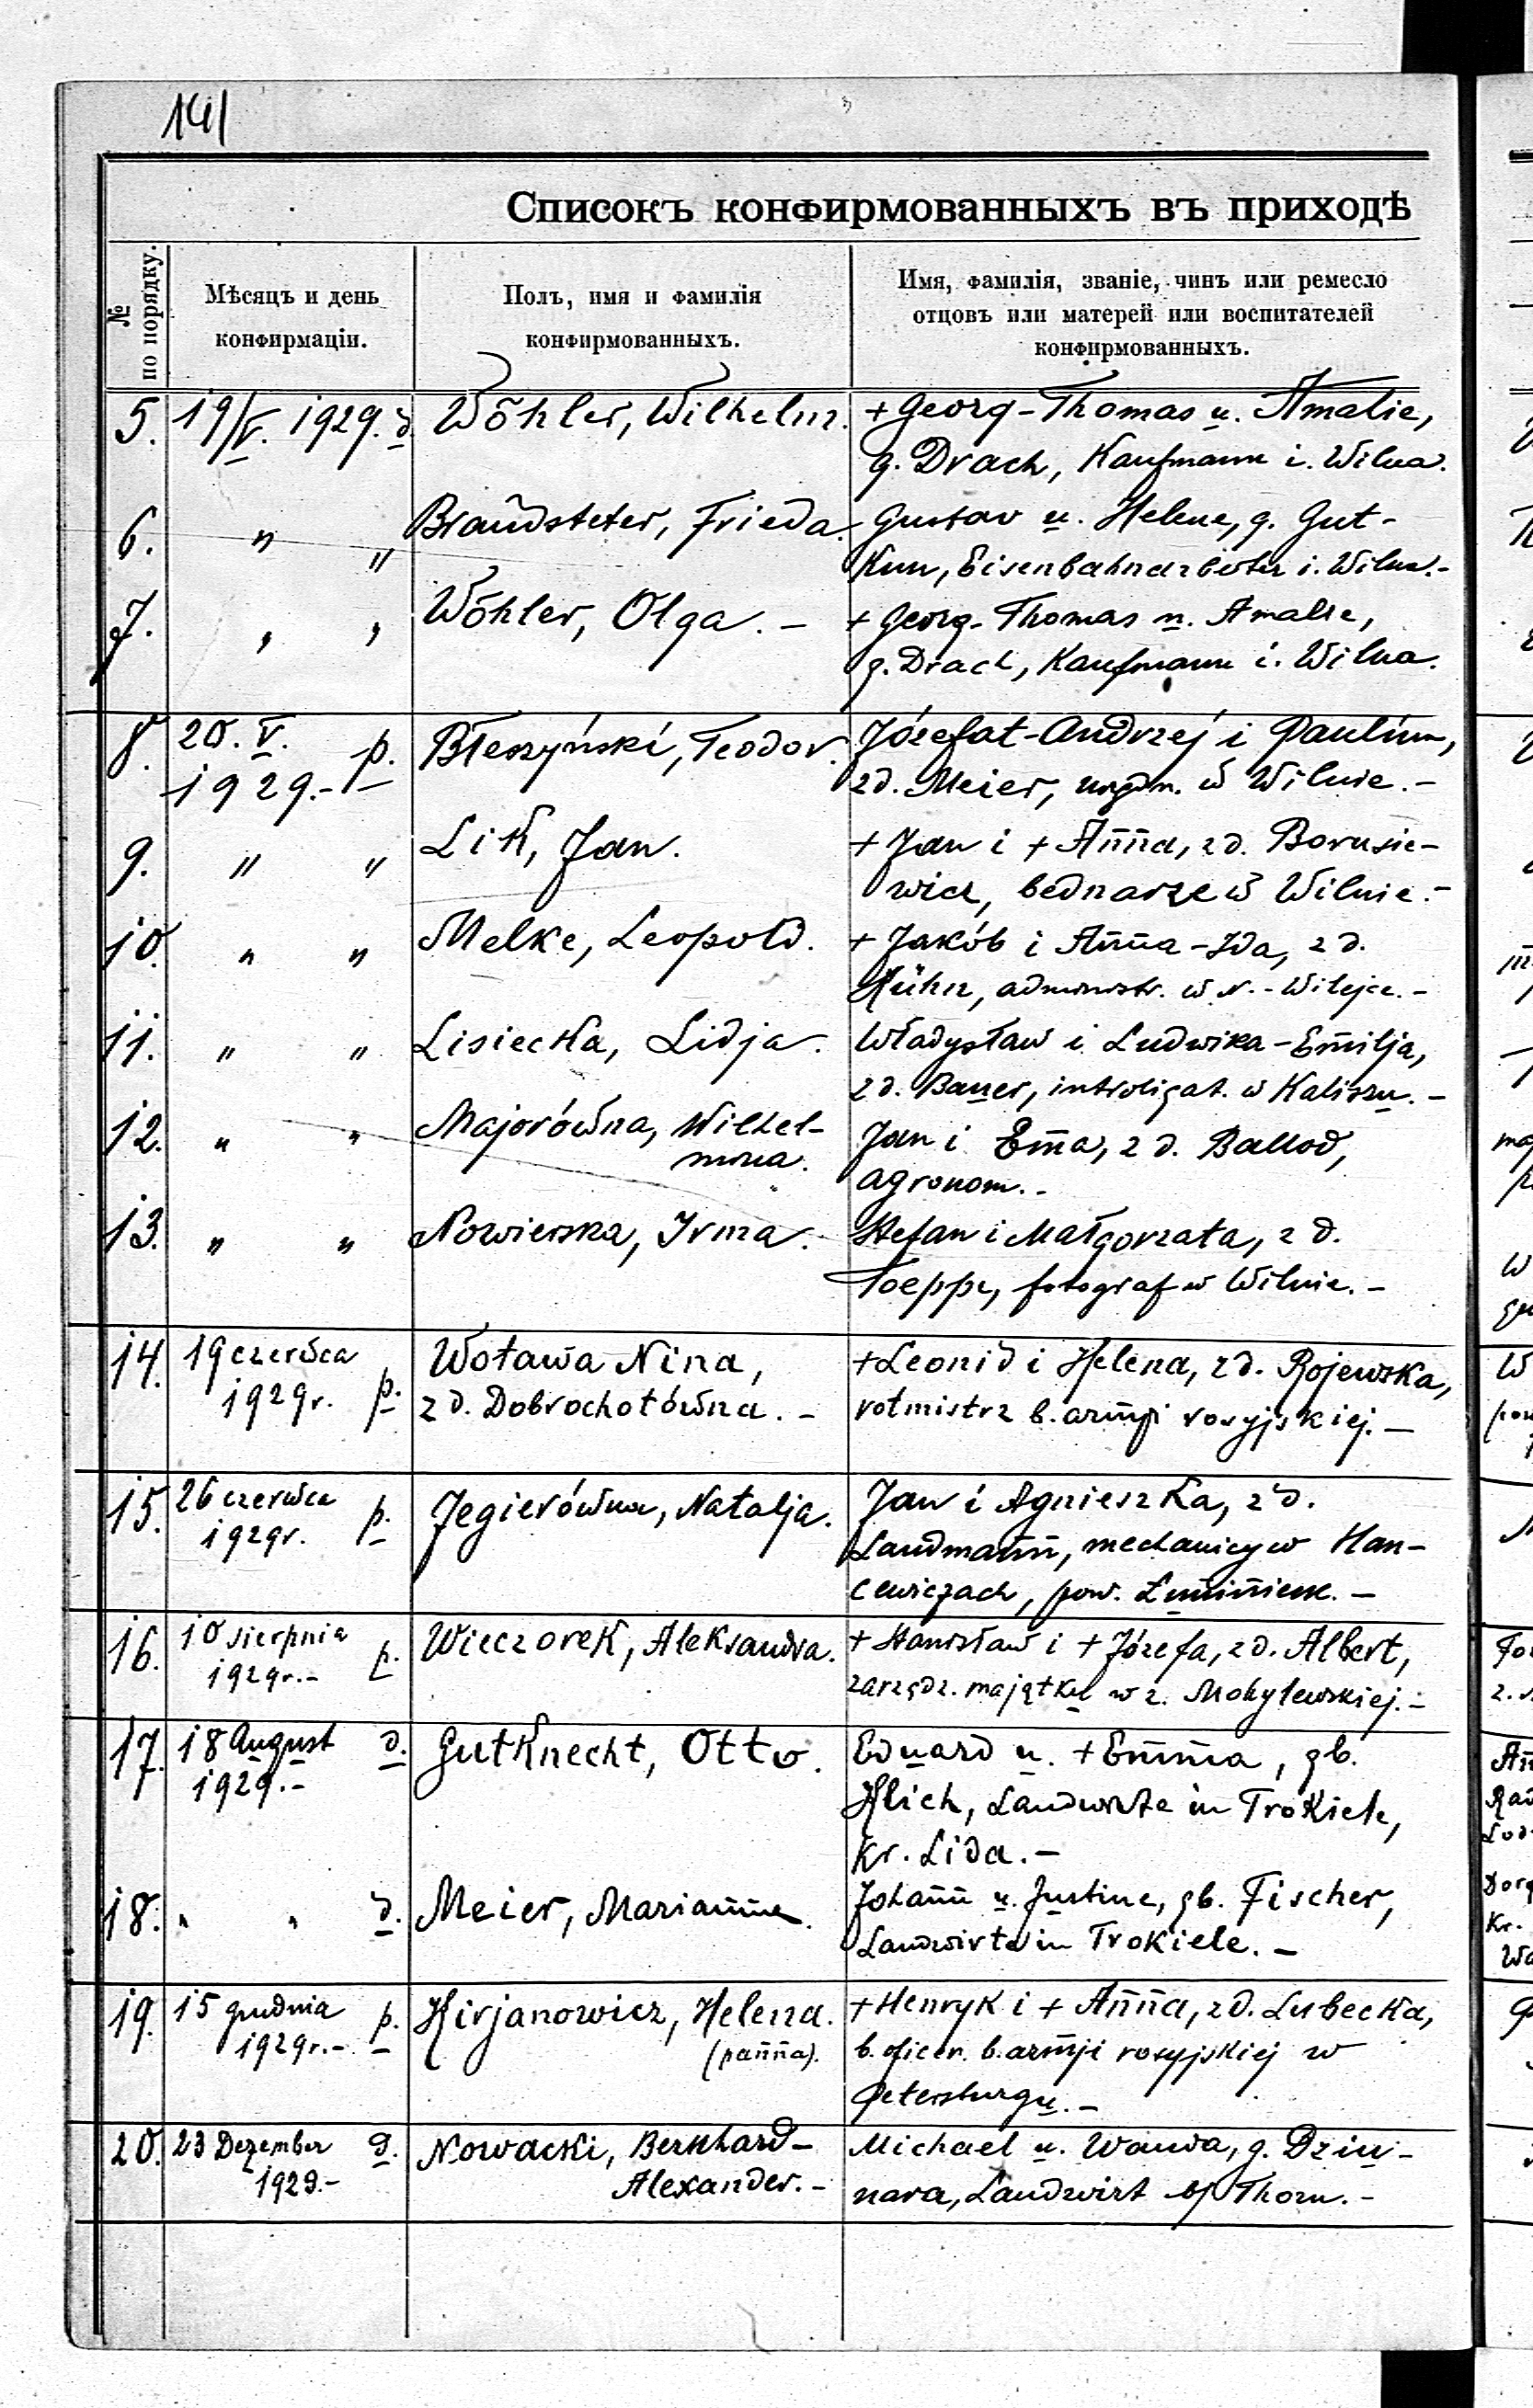 141
Списокъ конфирмованныхъ въ приходѣ
№ по порядку.
Мѣсяцъ и день
конфирмаціи.
Полъ, имя и фамилія
конфирмованныхъ.
Имя, фамилія, званіе, чинъ или ремесло
отцовъ или матерей или воспитателей
конфирмованныхъ.
5. 19/V. 1929. d. Wöhler, Wilhelm. + Georg-Thomas u. Amalie,
g. Drach, Kaufmann i. Wilna.
6. " " Braudsteter, Frieda. Gustav u. Helene, g. Gut-
Kun, Eisenbahnarbeiter i. Wilna.-
7. " " Wöhler, Olga. - + Georg-Thomas u. Amalie,
g. Drach, Kaufmann i. Wilna.
8. 20. V. p. Błeszyński, Teodor. Józefat-Andrzej i Paulina,
1929.- zd. Meier, w Wilnie.-
9. " " Lik, Jan. + Jan i + Anna, zd. Borusie-
wicz, bednarze w Wilnie.-
10. " " Melke, Leopold. + Jakób i Anna-Ida, zd.
Kühn, administr. w N.-Wilejce.-
11. " " Lisiecka, Lidja. Władysław i Ludwika-Emilja,
zd. Bauer, introligat. w Kaliszu.-
12. " " Majorówna, Wilhel-
mina.
Jan i Em̄a, zd. Ballod,
agronom.-
13. " " Nowierska, Irma. Stefan i Małgorzata, zd.
Toeppe, fotograf w Wilnie.-
14. 19 czerwca Wotawa Nina, + Leonid i Helena, zd. Rojewska,
1929r. p. zd. Dobrochotówna.- rotmistrz b. armji rosyjskiej.-
15. 26 czerwca p. Jegierówna, Natalja. Jan i Agnieszka, zd.
1929r. Landmann, mechanicy w Han-
cewiczach, pow. Łuniniec.-
16. 10 sierpnia p. Wieczorek, Aleksandra. + Stanisław i + Józefa, zd. Albert,
1929r.- zarządz. majątku w z. Mohylewskiej.-
17. 18 August d. Gutknecht, Otto. Eduard u. + Emma, gb.
1929.- Hlich, Landwirte in Trokiele,
Kr. Lida.-
18. " " d. Meier, Marianne. Johann u. Justine, gb. Fischer,
Landwirte in Trokiele.-
19. 15 grudnia p. Kirjanowicz, Helena. + Henryk i + Anna, zd. Lubecka,
1929r.- (panna). b. oficer. b. armji rosyjskiej w
Petersburgu.-
20. 23 Dezember d. Nowacki, Bernhard- Michael u. Wanda, g. Dziu-
1929.- Alexander.- nara, Landwirt b/ Thorn.-